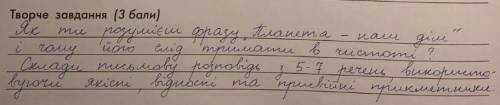 Творче завдання (3 бали)
Як ти розумієш фразу „Планета - наш дім"
і чому його слід тримати в чистоті?
Склади письмову розповідь з 5-7 речень, використо-
вуючи якісні, відносні та присвійні прикметники.